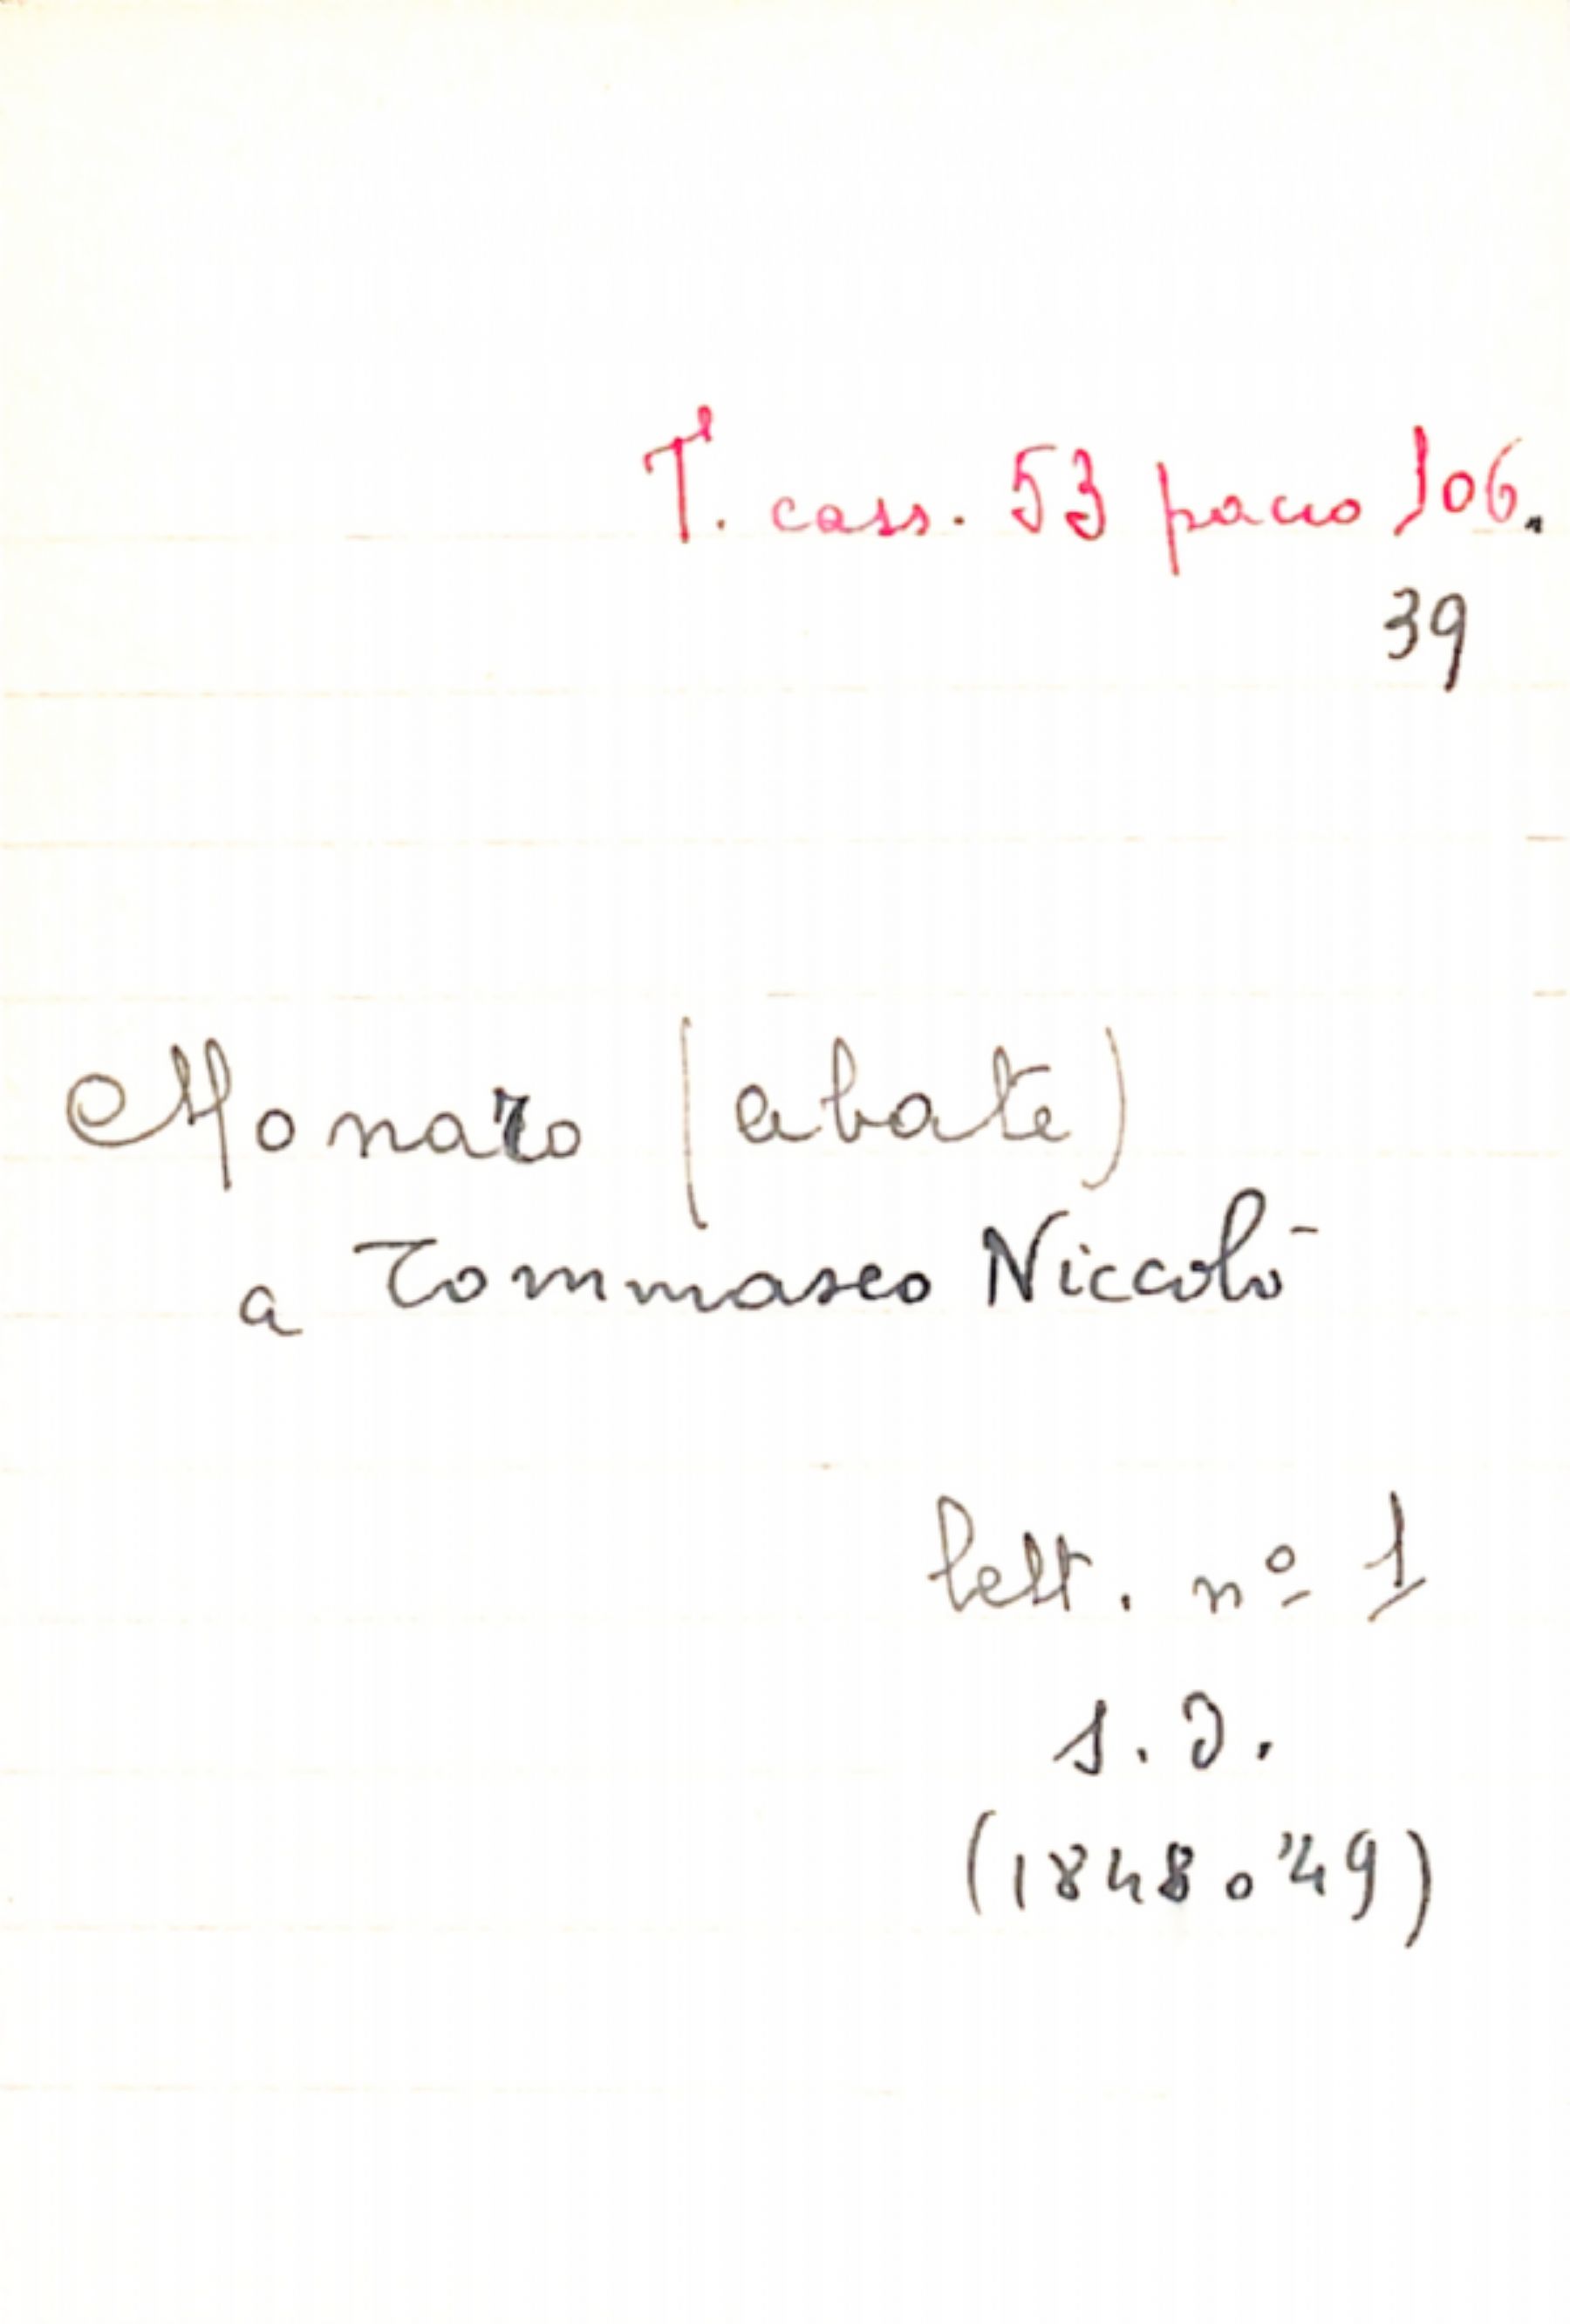 T. cass. 53 pacco 106.
39
(abate)
a Tommaseo Niccolò
lett. nº 1
s. d.
(1848 o '49)